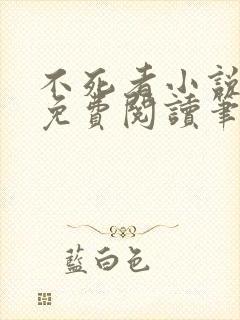 不死者小說
免費閱讀筆
藍白色